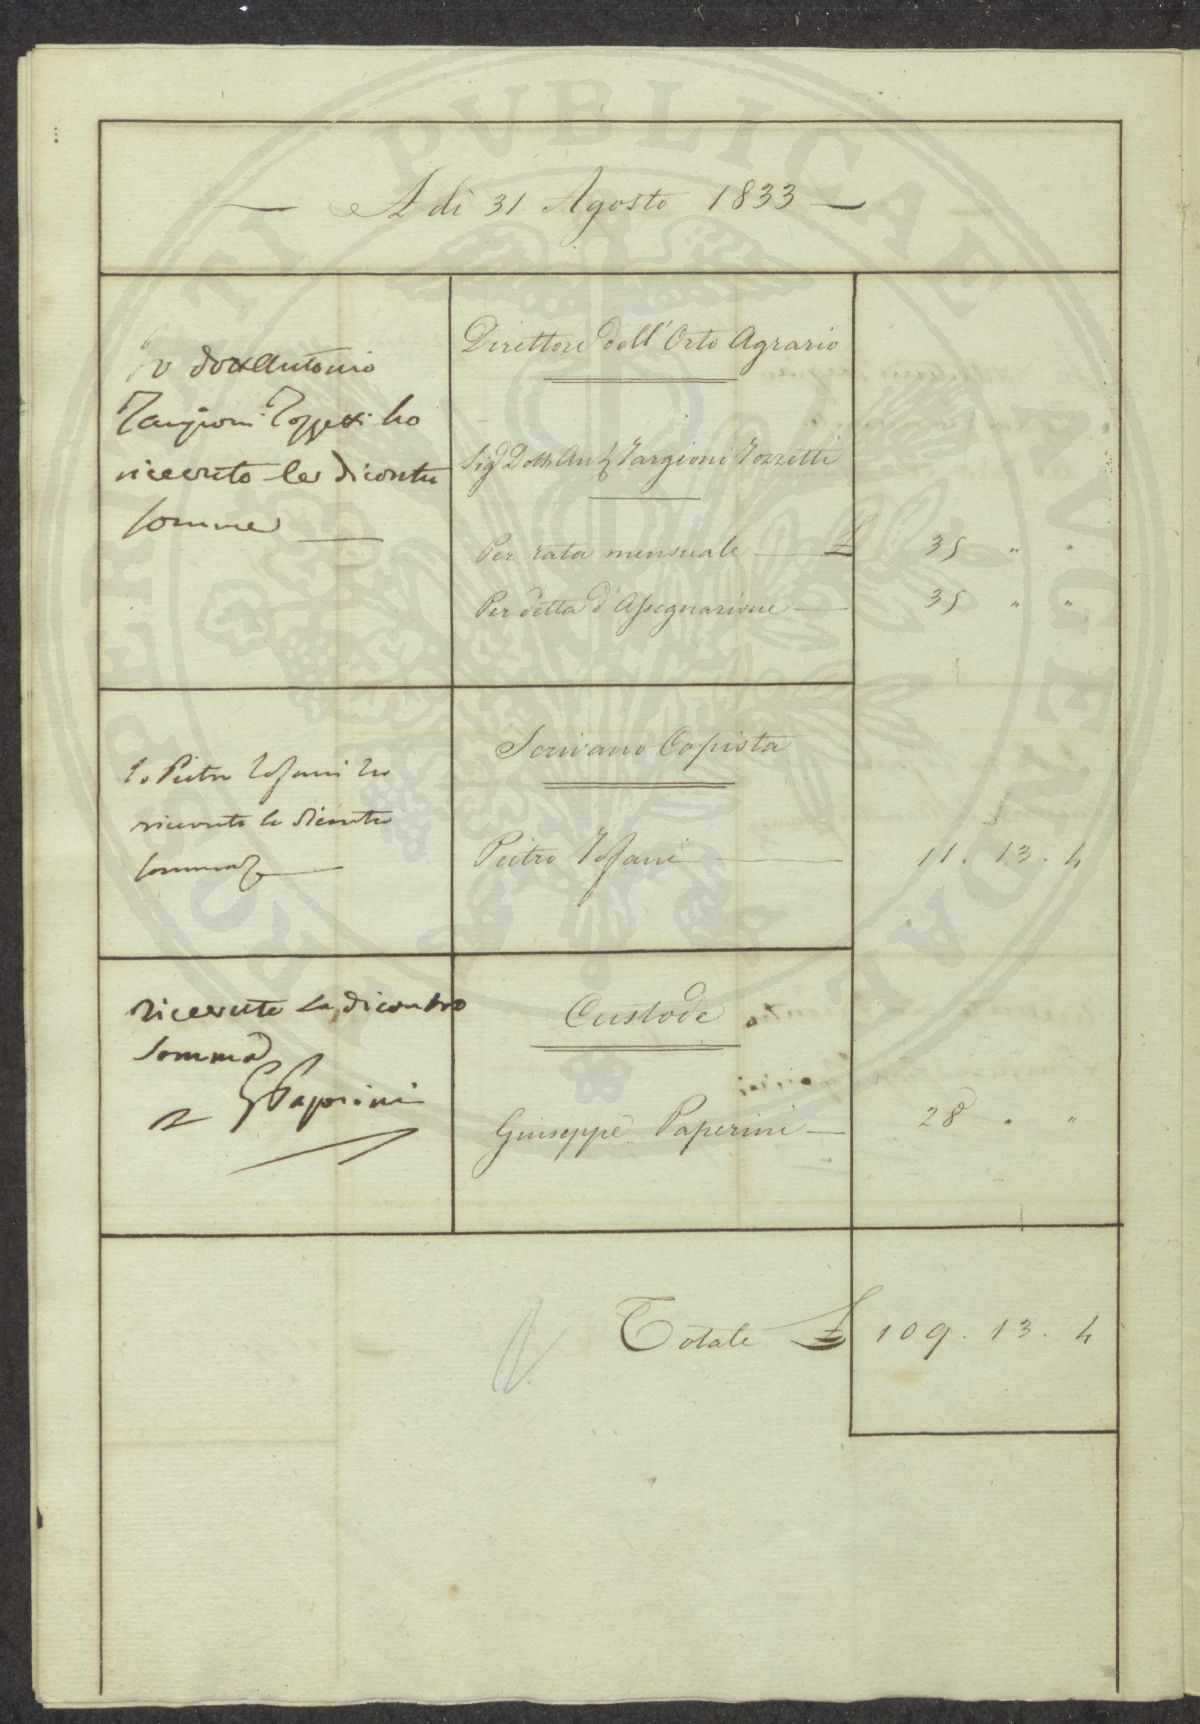 A dì 31 Agosto 1833
Io Dott Antonio
Targioni Tozzetti ho
ricevuto le dicontro
somme
Direttore dell'Orto Agrario
Sigr Dottr Antº Targioni Tozzetti
Per rata mensuale £ 35 " "
Per detta d'Assegnazione 35 " "
Io Pietro Tofani ho
ricevuto la dicontro
somma
Scrivano Copista
Pietro Tofani 11. 13. 4
Ricevuto la dicontro
Somma
G Paperini
Custode
Giuseppe Paperini 28 " "
Totale £ 109. 13. 4
PVBLICAE